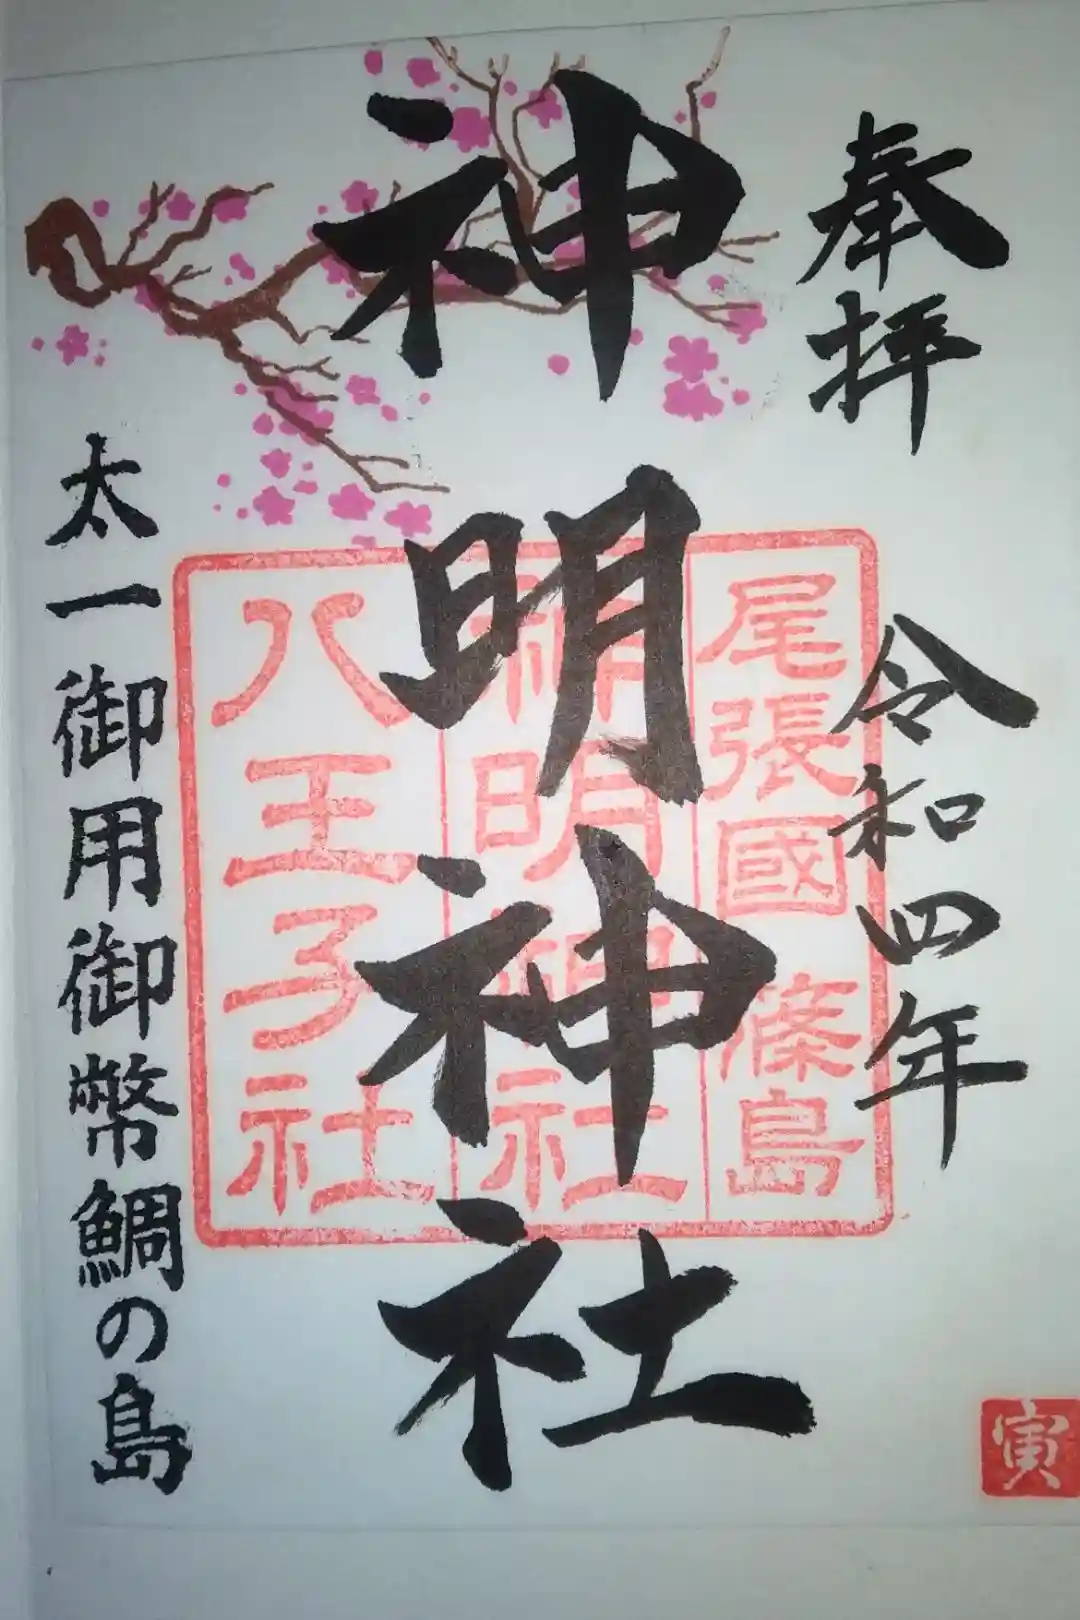 奉拝
令和四年
神明神社
太一御用御幣鯛の島
尾張國 篠島
神明神社
八王子社
寅